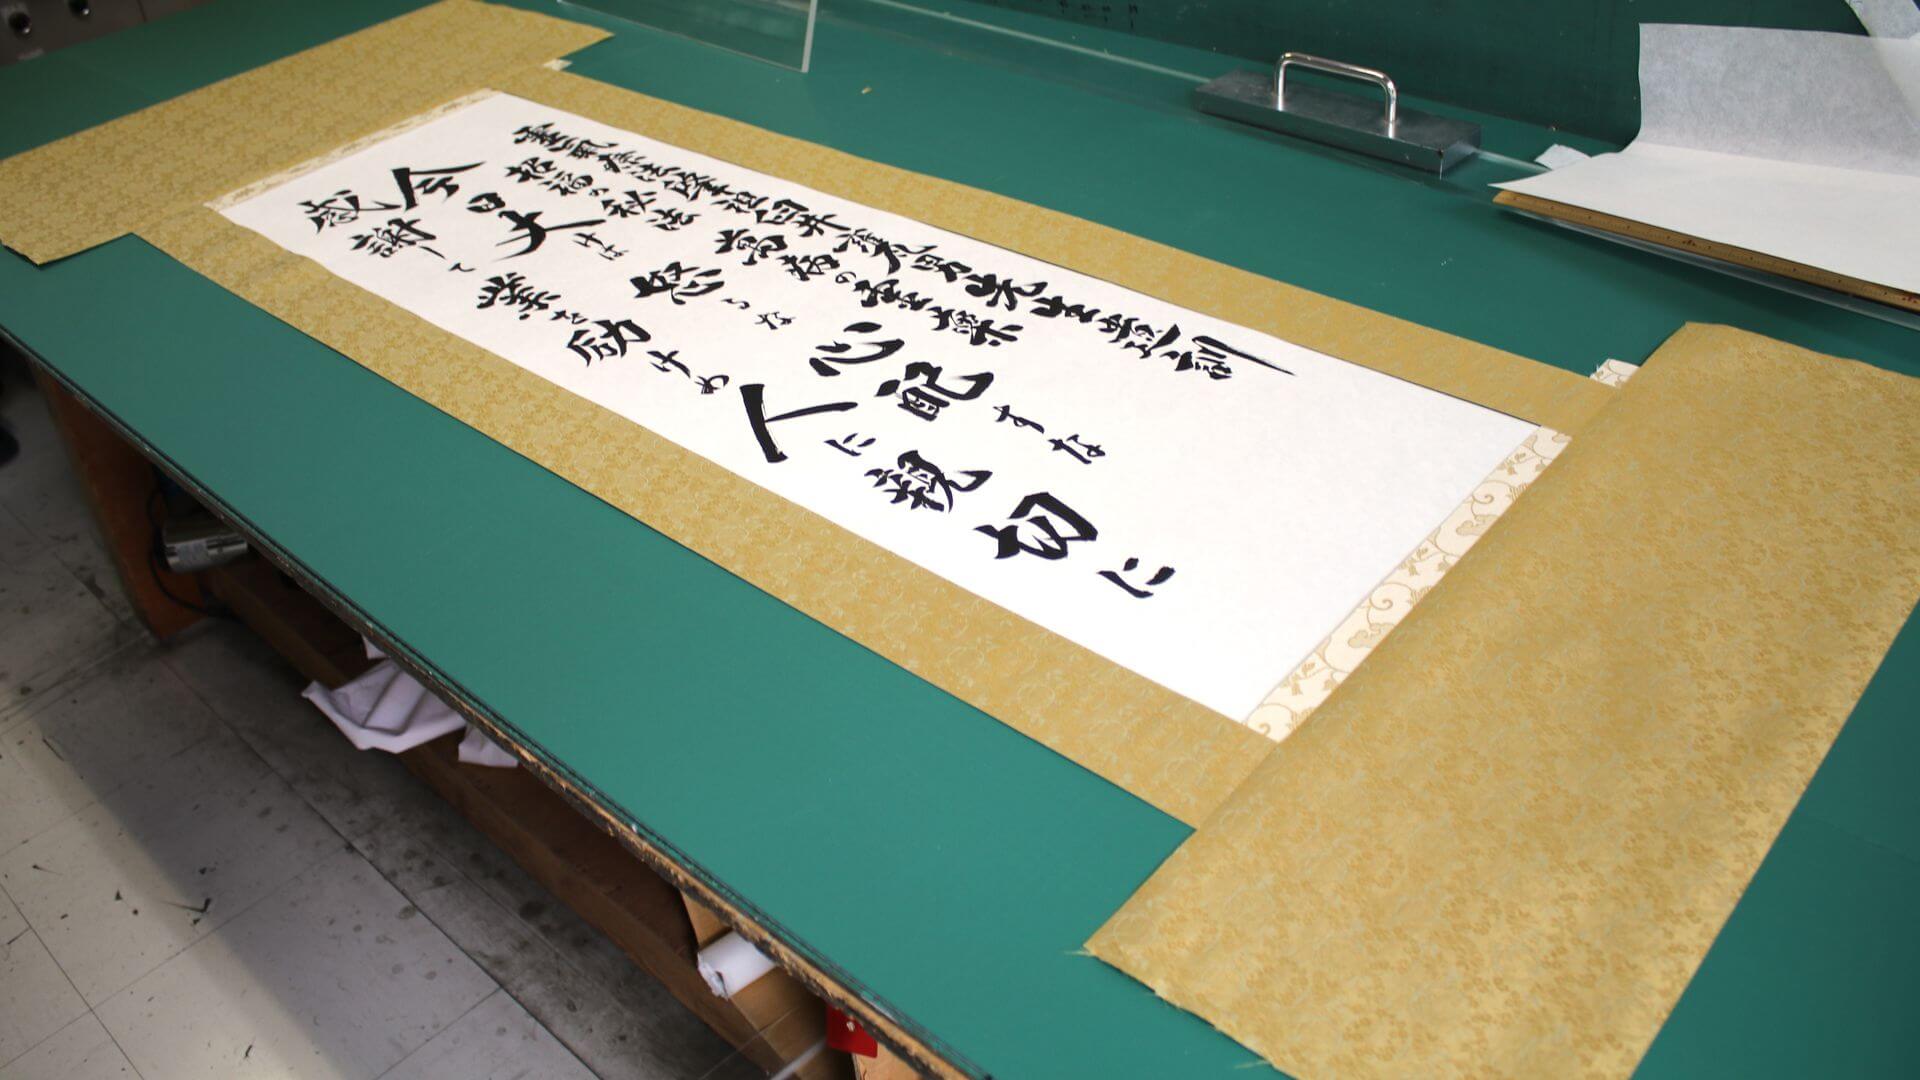 靈氣療法肇祖臼井甕男先生遺訓
招福の秘法萬病の靈薬
今日丈けは怒るな心配すな
感謝て業を励けめ人に親切に